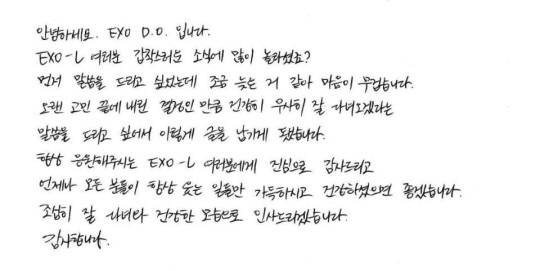 안녕하세요. EXO D.O. 입니다.
EXO-L 여러분 갑작스러운 소식에 많이 놀라셨죠?
먼저 말씀을 드리고 싶었는데 조금 늦는 거 같아 마음이 무겁습니다.
오랜 고민 끝에 내린 결정인 만큼 건강히 무사히 잘 다녀오겠다는
말씀을 드리고 싶어서 이렇게 글을 남기게 됐습니다.
항상 응원해주시는 EXO-L 여러분에게 진심으로 감사드리고
언제나 모든 분들이 항상 웃는 일들만 가득하시고 건강하셨으면 좋겠습니다.
조심히 잘 다녀와 건강한 모습으로 인사드리겠습니다.
감사합니다.